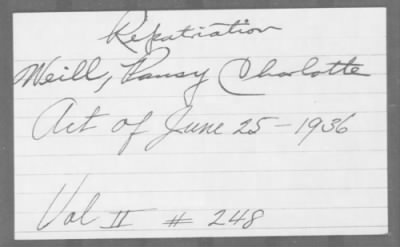 Repatriation
Weill, Pansy Charlotte
Act of June 25-1936
Vol II # 248